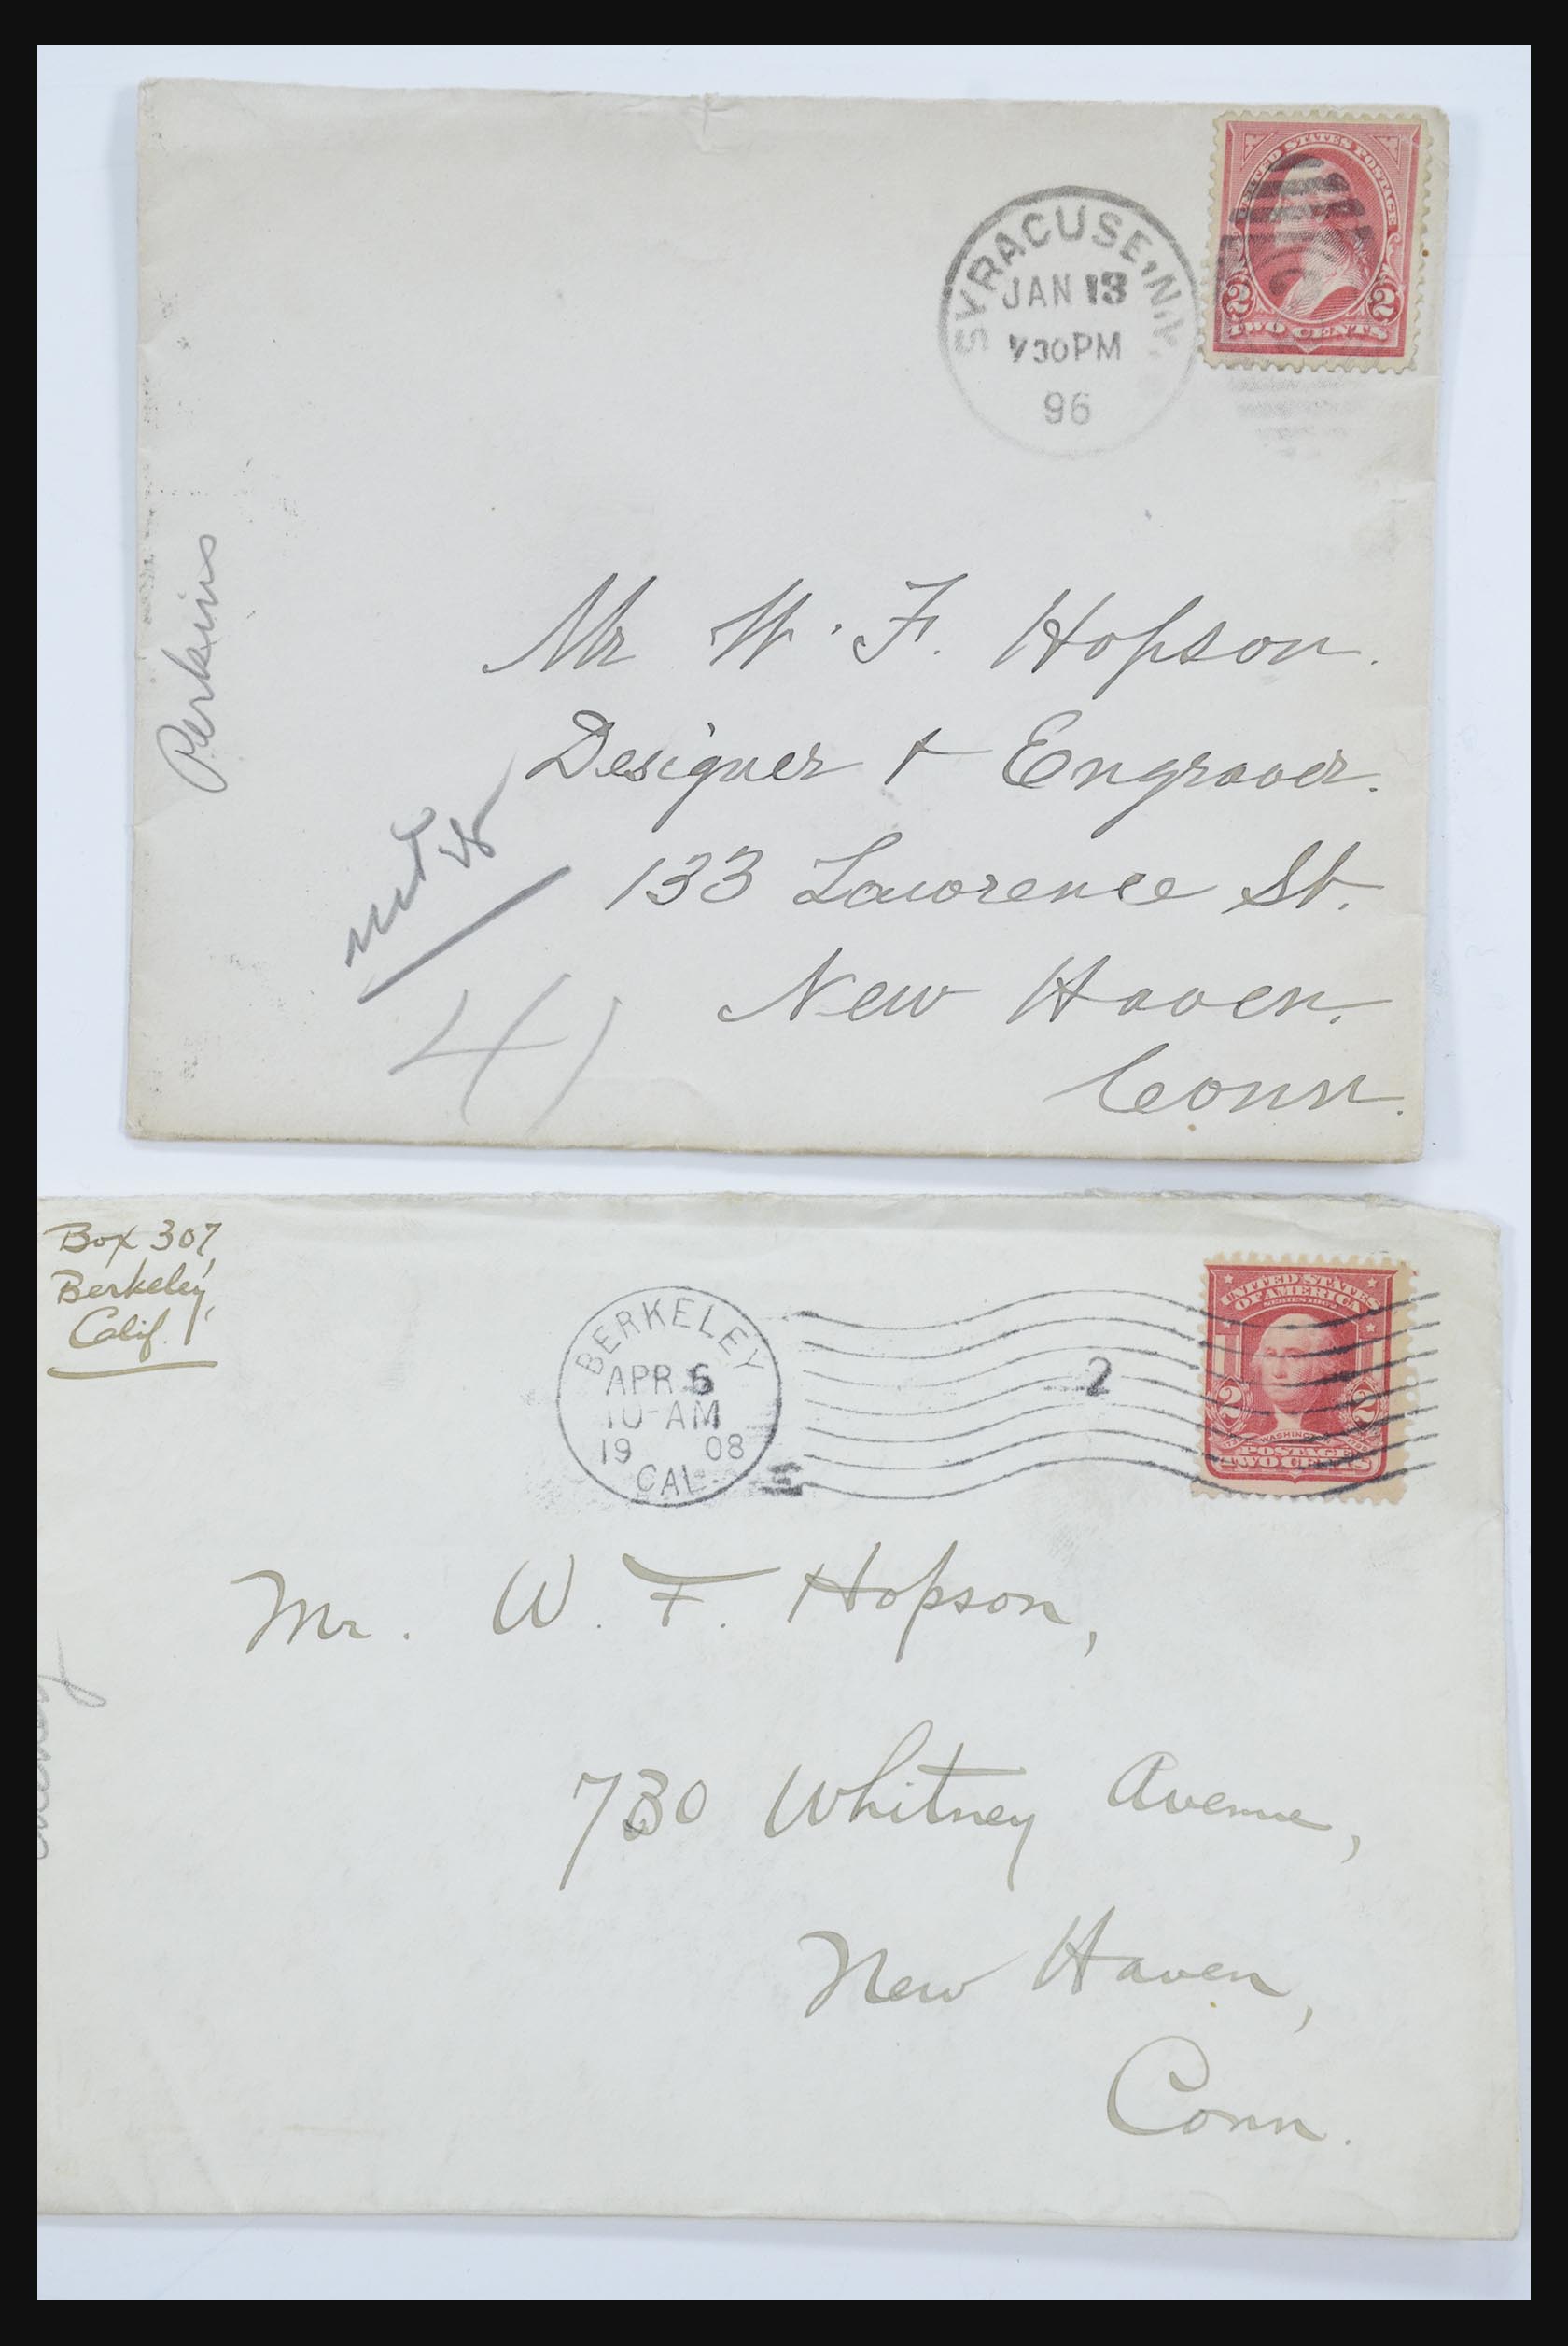 UNITED STATES POSTAGE
2 2
TWO CENTS
SYRACUSE, N.Y.
JAN 13
730PM
96
Perkins
Mr W. F. Hopson.
Designer & Engraver.
133 Lawrence St.
New Haven.
Conn.
41
Box 307,
Berkeley,
Calif.
BERKELEY
APR 5
10-AM
19 08
CAL.
2
UNITED STATES
OF AMERICA
SERIES 1902
2 2
WASHINGTON
POSTAGE
TWO CENTS
Mr. W. F. Hopson,
730 Whitney Avenue,
New Haven,
Conn.